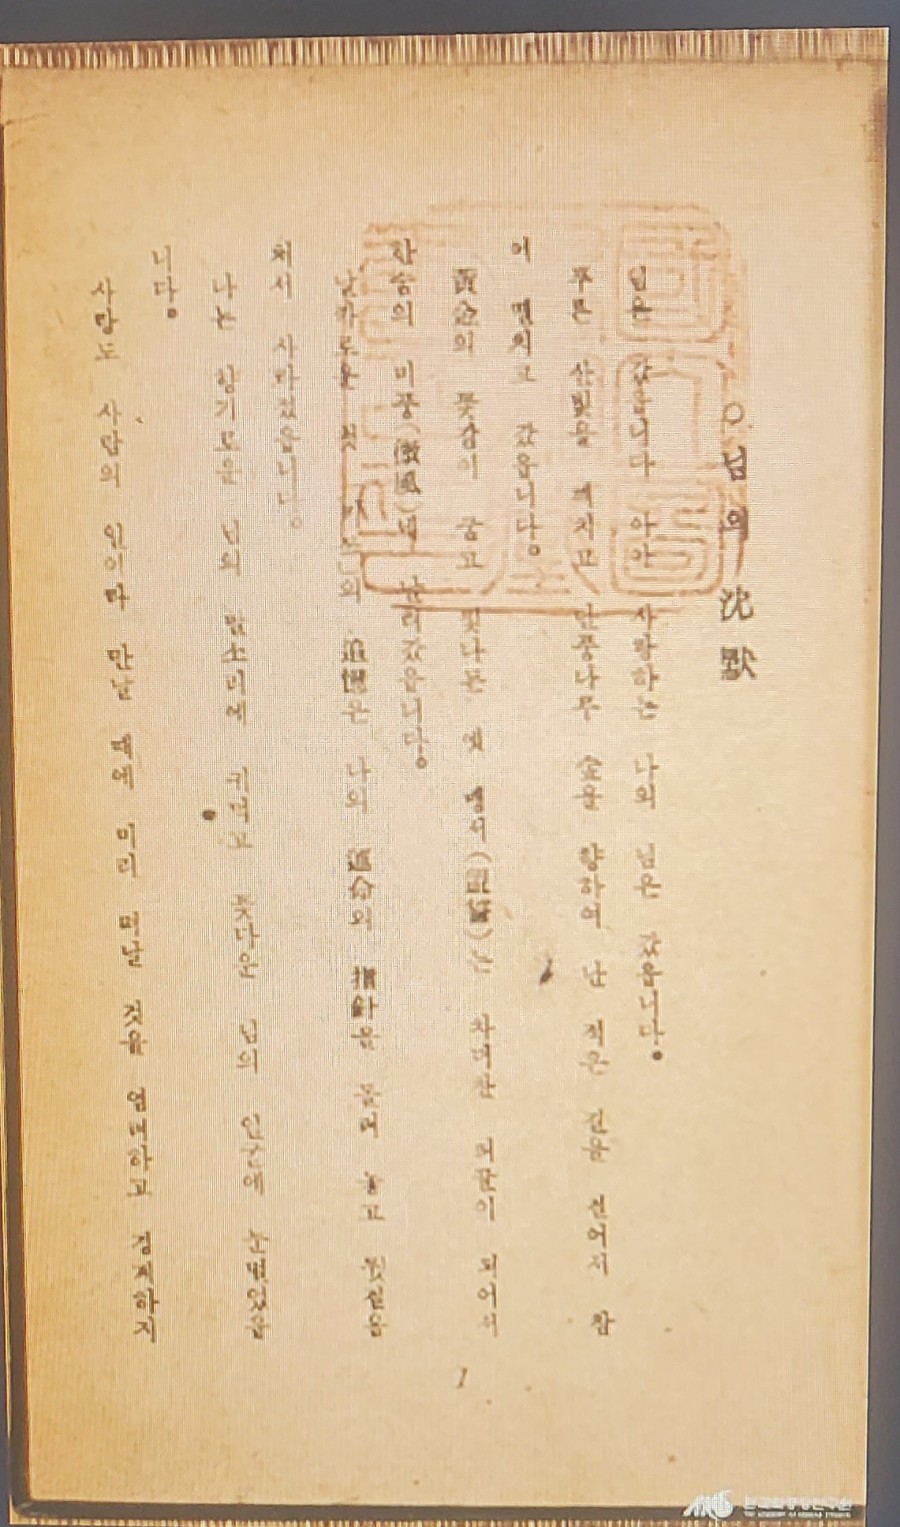 ○님의 沈默
님은 갔읍니다 아아 사랑하는 나의 님은 갔읍니다。
푸른 산빛을 깨치고 단풍나무 숲을 향하여 난 적은 길을 걸어서 참
어 떨치고 갔읍니다。
黃金의 꽃같이 굳고 빛나든 옛 맹서(盟誓)는 차디찬 띠끌이 되어서
한숨의 미풍(微風)에 날러갔읍니다。
날카로운 첫 의 追憶은 나의 運命의 指針을 돌려 놓고 뒷걸음
쳐서 사라졌읍니다。
나는 향기로운 님의 말소리에 귀먹고 꽃다운 님의 얼굴에 눈멀었습
니다。
사랑도 사람의 일이라 만날 때에 미리 떠날 것을 염려하고 경계하지
1
한국학중앙연구원